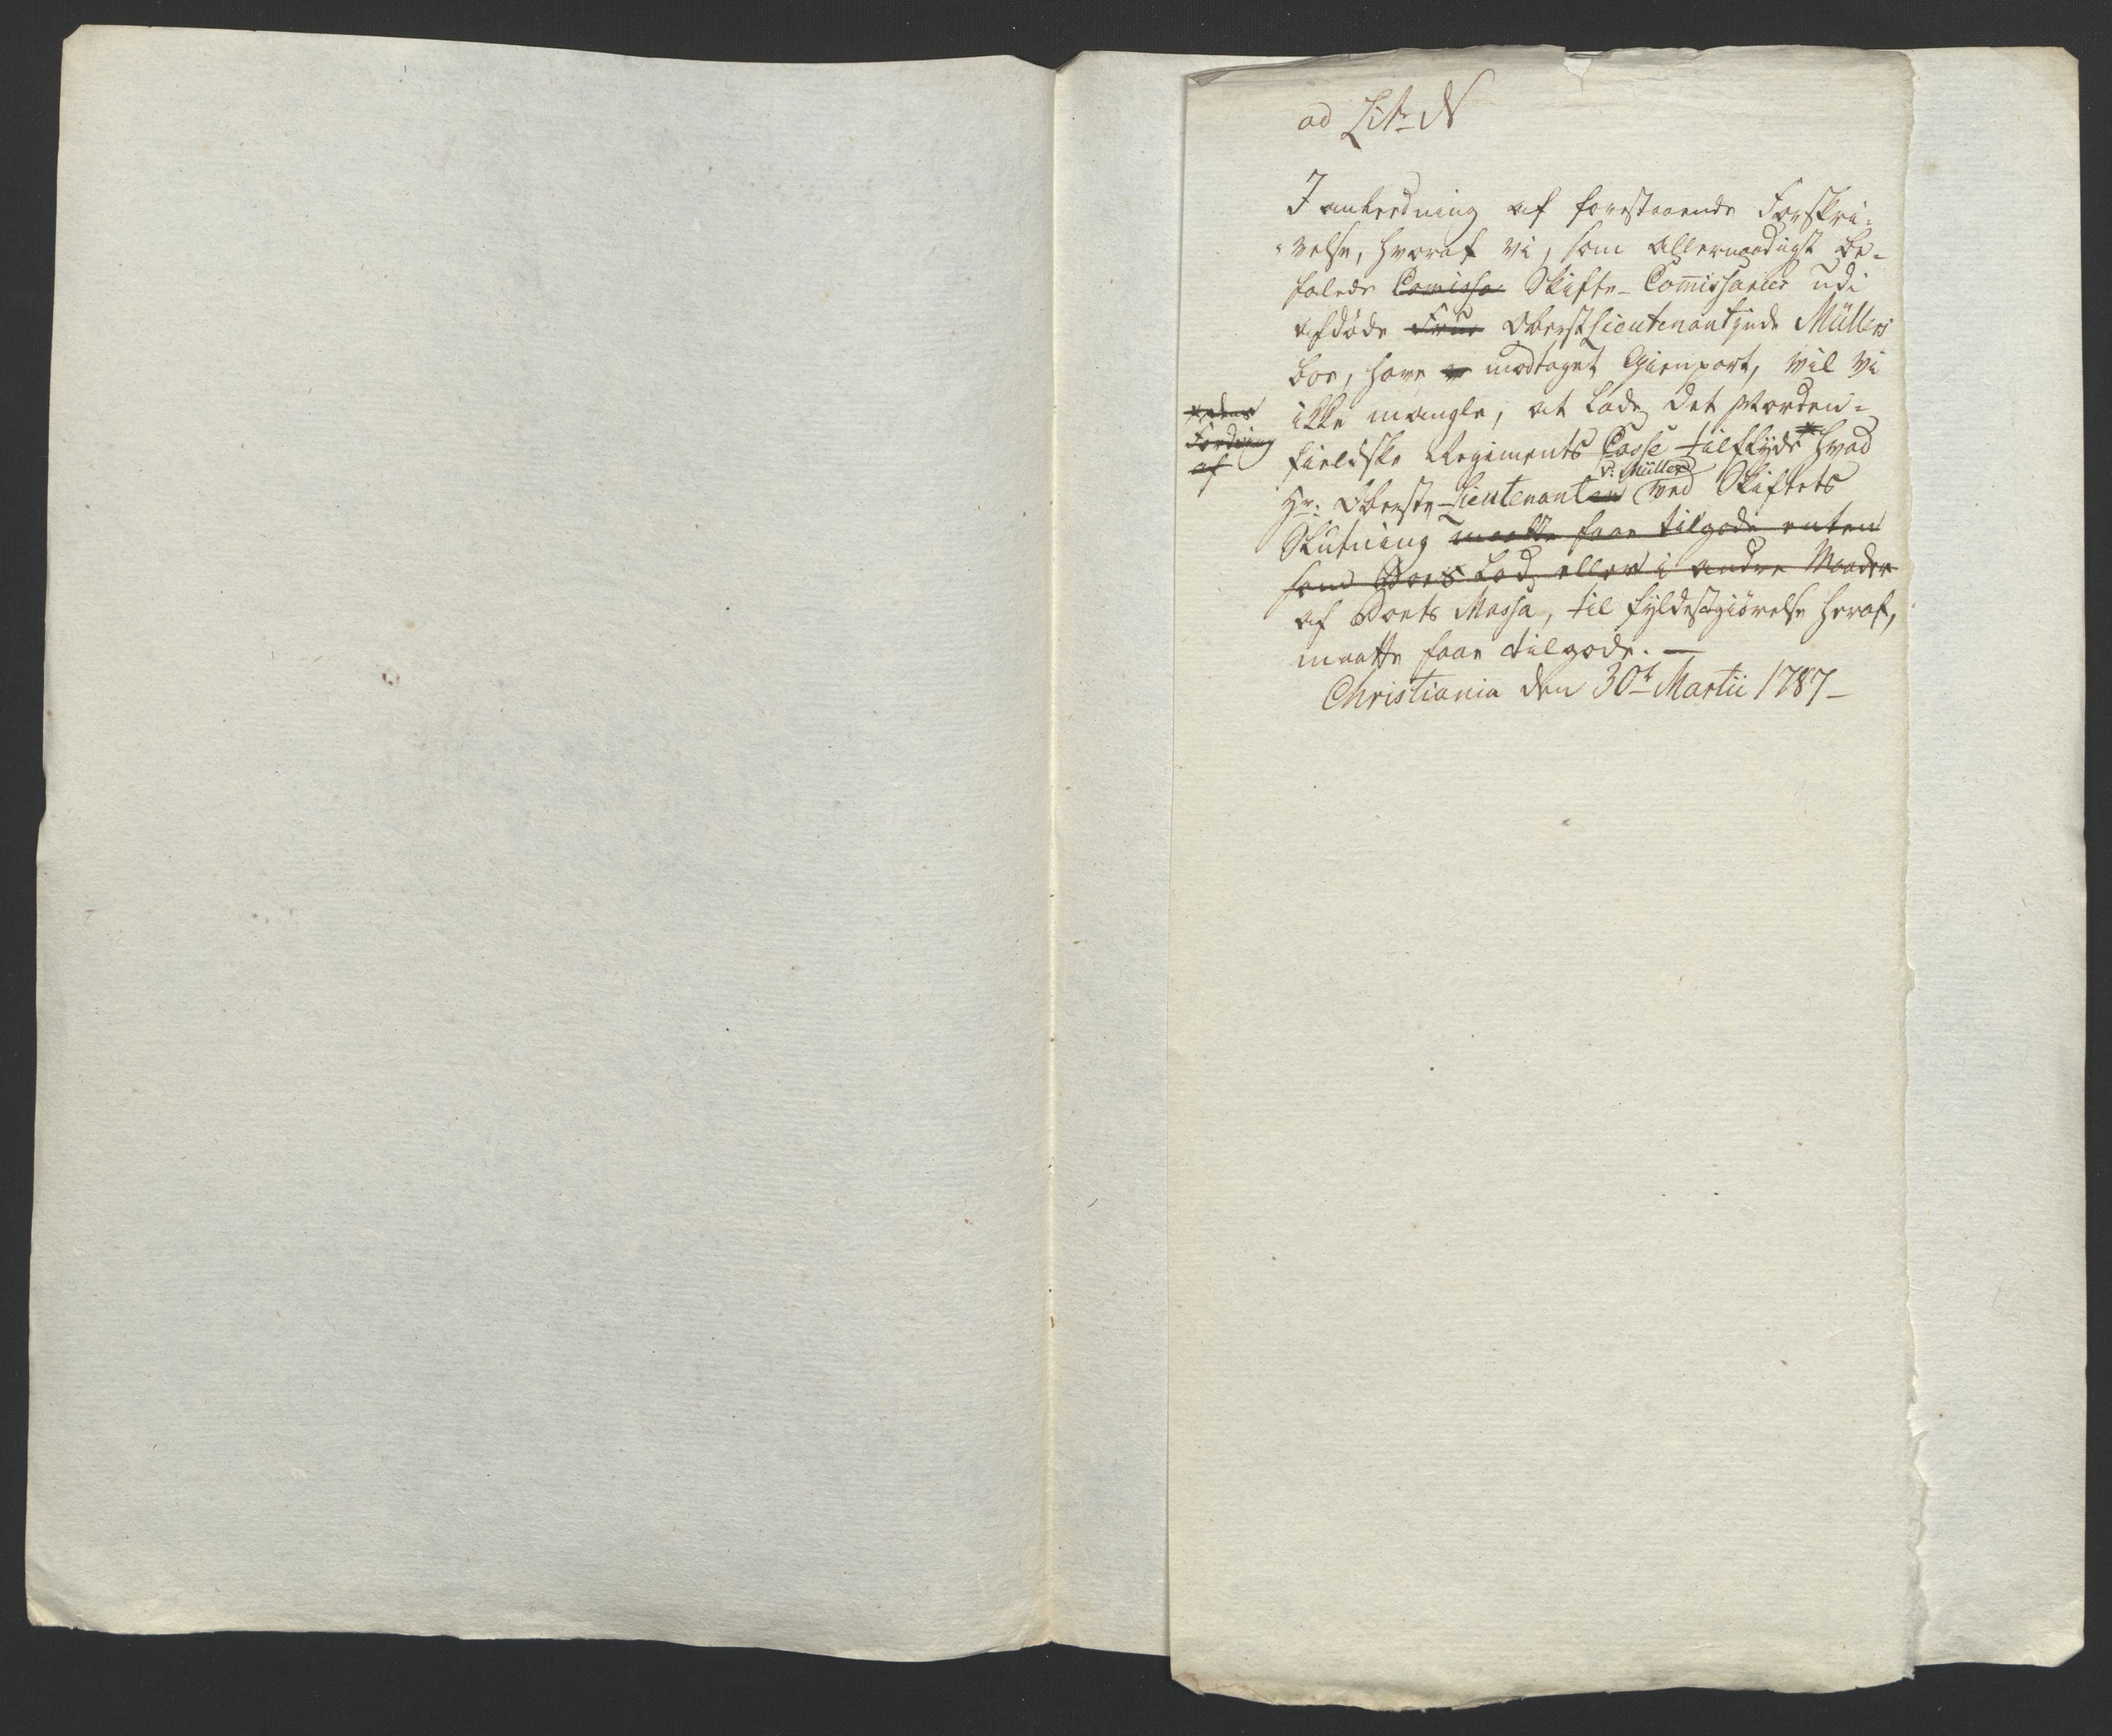 ad Litr N
I anledning af forestaaende Forskri-
velse, hvoraf vi, som allernaadigst be-
falede Comissa Skifte-Com̄issarier udi
afdøde Frue Oberstlieutenantinde Müllers
boe, have modtaget Gienpart, vil vi
ikke mangle, at lade det Norden-
fieldske Regiments Casse tilflyde * hvad
Fordring
af
v: Müller
Hr: Oberste-Lieutenanten ved Skiftets
Slutning maatte faae tilgode enten
som Boes Lod, eller i andre Maader
af Boets Massa, til fyldestgiørelse heraf,
maatte faae tilgode. —
Christiania den 30te Martii 1787 –